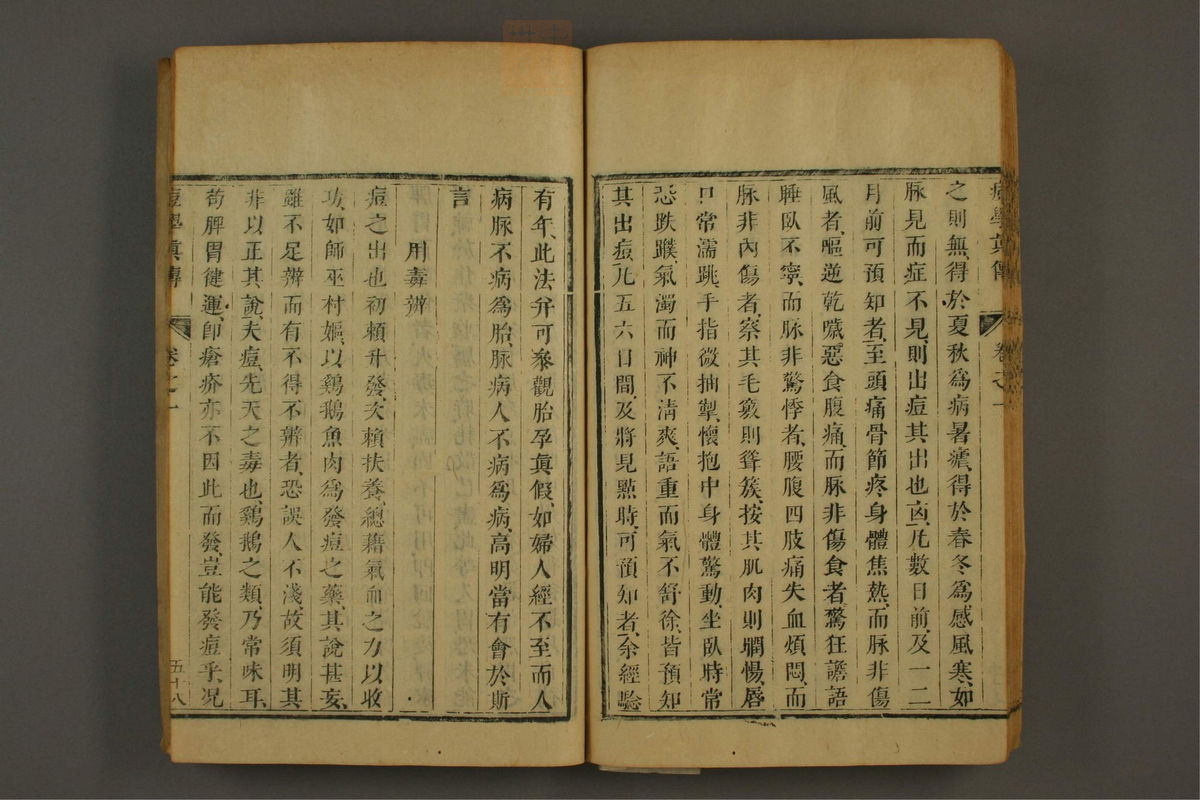 痘學眞傳 卷之一
之則無、得於夏秋爲病暑瘧、得於春冬爲感風寒、如
脉見而症不見、則出痘其出也、凶、凡數日前、及一二
月前可預知者、至頭痛骨節疼身體焦熱、而脉非傷
風者、嘔逆乾噦惡食腹痛、而脉非傷食者、驚狂譫語
睡臥不寧、而脉非驚悸者、腰腹四肢痛失血煩悶、而
脉非內傷者、察其毛髮則聳簇、按其肌肉則瞤惕、唇
口常濡跳、手指微抽掣、懷抱中身體驚動、坐臥時常
恐跌蹼、氣濁而神不淸爽、語重而氣不舒徐、皆預知
其出痘、凡五六日間、及將見點時、可預知者、余經驗
有年、此法弁可叅觀胎孕眞假、如婦人經不至而人
病脉不病爲胎、脉病人不病爲病、高明當有會於斯
言
用毒辨
痘之出也初賴升發、次賴扶養、總藉氣血之力以收
功、如師巫村嫗、以鷄鵝魚肉爲發痘之藥、其說甚妄、
雖不足辨而有不得不辨者、恐誤人不淺、故須明其
非以正其說、夫痘、先天之毒也、鷄鵝之類、乃常味耳、
苟脾胃健運、卽瘡疥亦不因此而發、豈能發痘乎、况
痘學眞傳 卷之一 五十八